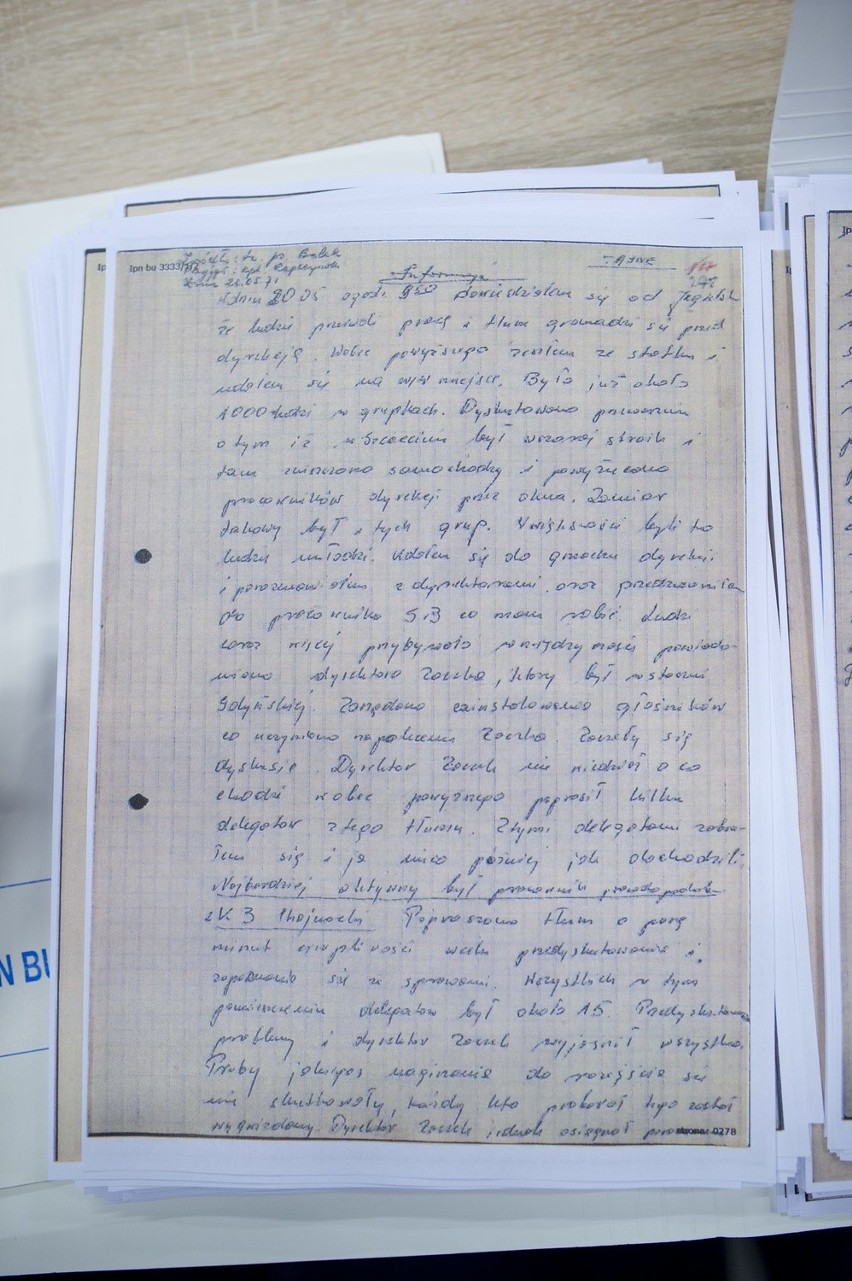 Ipn bu 3333/
Źródło: tw. ps.
Przyjął: kpt.
Dnia 21.05.71
TAJNE
Informacja
W dniu 20.05 o godz. 9:50 dowiedziałem się od
że ludzie przerwali pracę i tłum gromadzi się przed
dyrekcją. Wobec powyższego zszedłem ze statku i
udałem się na w/w miejsce. Było już około
1000 ludzi w grupkach. Dyskutowano
o tym iż w Szczecinie był wczoraj strajk i
tam zniszczono samochody i powyrzucano
pracowników dyrekcji przez okna. Zamiar
takowy był i tych grup. W większości byli to
ludzie młodzi. Udałem się do gmachu dyrekcji
i porozmawiałem z dyrektorami oraz
do pracownika SB co mam robić. Ludzi
coraz więcej przybywało w międzyczasie powiado-
miono dyrektora Zaczka, który był w stoczni
Gdyńskiej. Zarządano zainstalowania głośników
co uczyniono na polecenie Zaczka. Zaczęły się
dyskusje. Dyrektor Zaczek nie wiedział o co
chodzi wobec powyższego poprosił kilku
delegatów z tego tłumu. Z tymi delegatami zabra-
łem się i ja nieco później jak dochodzili.
Najbardziej aktywny był pracownik prawdopodobn.
z K-3 Chojnacki Poproszono tłum o parę
minut cierpliwości w celu przedyskutowania i
zapoznania się ze sprawami. Wszystkich w tym
pomieszczeniu delegatów był około 15. Przedyskutowano
problemy i dyrektor Zaczek wyjaśnił wszystko.
Próby jakiegoś nagięcia do rozejścia się
nie skutkowały, każdy kto próbował tego został
wygwizdany. Dyrektor Zaczek jednak osiągnął
strona: 0278
N BU